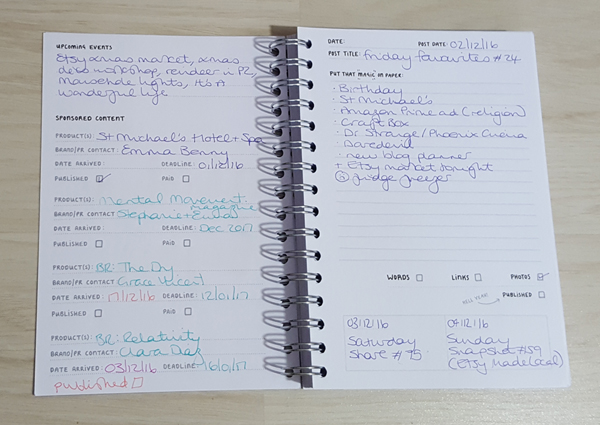 UPCOMING EVENTS
Etsy xmas market, xmas
deco workshop, reindeer in PZ,
Mousehole lights, It's A
wonderful life
SPONSORED CONTENT
PRODUCT(S): St Michael's Hotel + Spa
BRAND/PR CONTACT: Emma Benny
DATE ARRIVED: DEADLINE: 01/12/16
PUBLISHED PAID
PRODUCT(S): Mental Movement
magazine
BRAND/PR CONTACT: Stephanie +
DATE ARRIVED: DEADLINE: Dec 2017
PUBLISHED PAID
PRODUCT(S): BR: The Dry
BRAND/PR CONTACT: Grace Vincent
DATE ARRIVED: 17/12/16 DEADLINE: 12/01/17
PUBLISHED PAID
PRODUCT(S): BR: Relativity
BRAND/PR CONTACT: Clara
DATE ARRIVED: 03/12/16 DEADLINE: 16/01/17
published
DATE: POST DATE: 02/12/16
POST TITLE: Friday favourites #24
PUT THAT MAGIC IN PAPER:
· Birthday
· St Michael's
· Amazon Prime ad (religion)
· Craft Box
· Dr Strange / Phoenix Cinema
· Daredevil
· new blog planner
+ Etsy market tonight
fridge freezer
WORDS LINKS PHOTOS
HELL YEAH! PUBLISHED
03/12/16
Saturday
Share #75
04/12/16
Sunday
Snapshot #59
(Etsy Made Local)